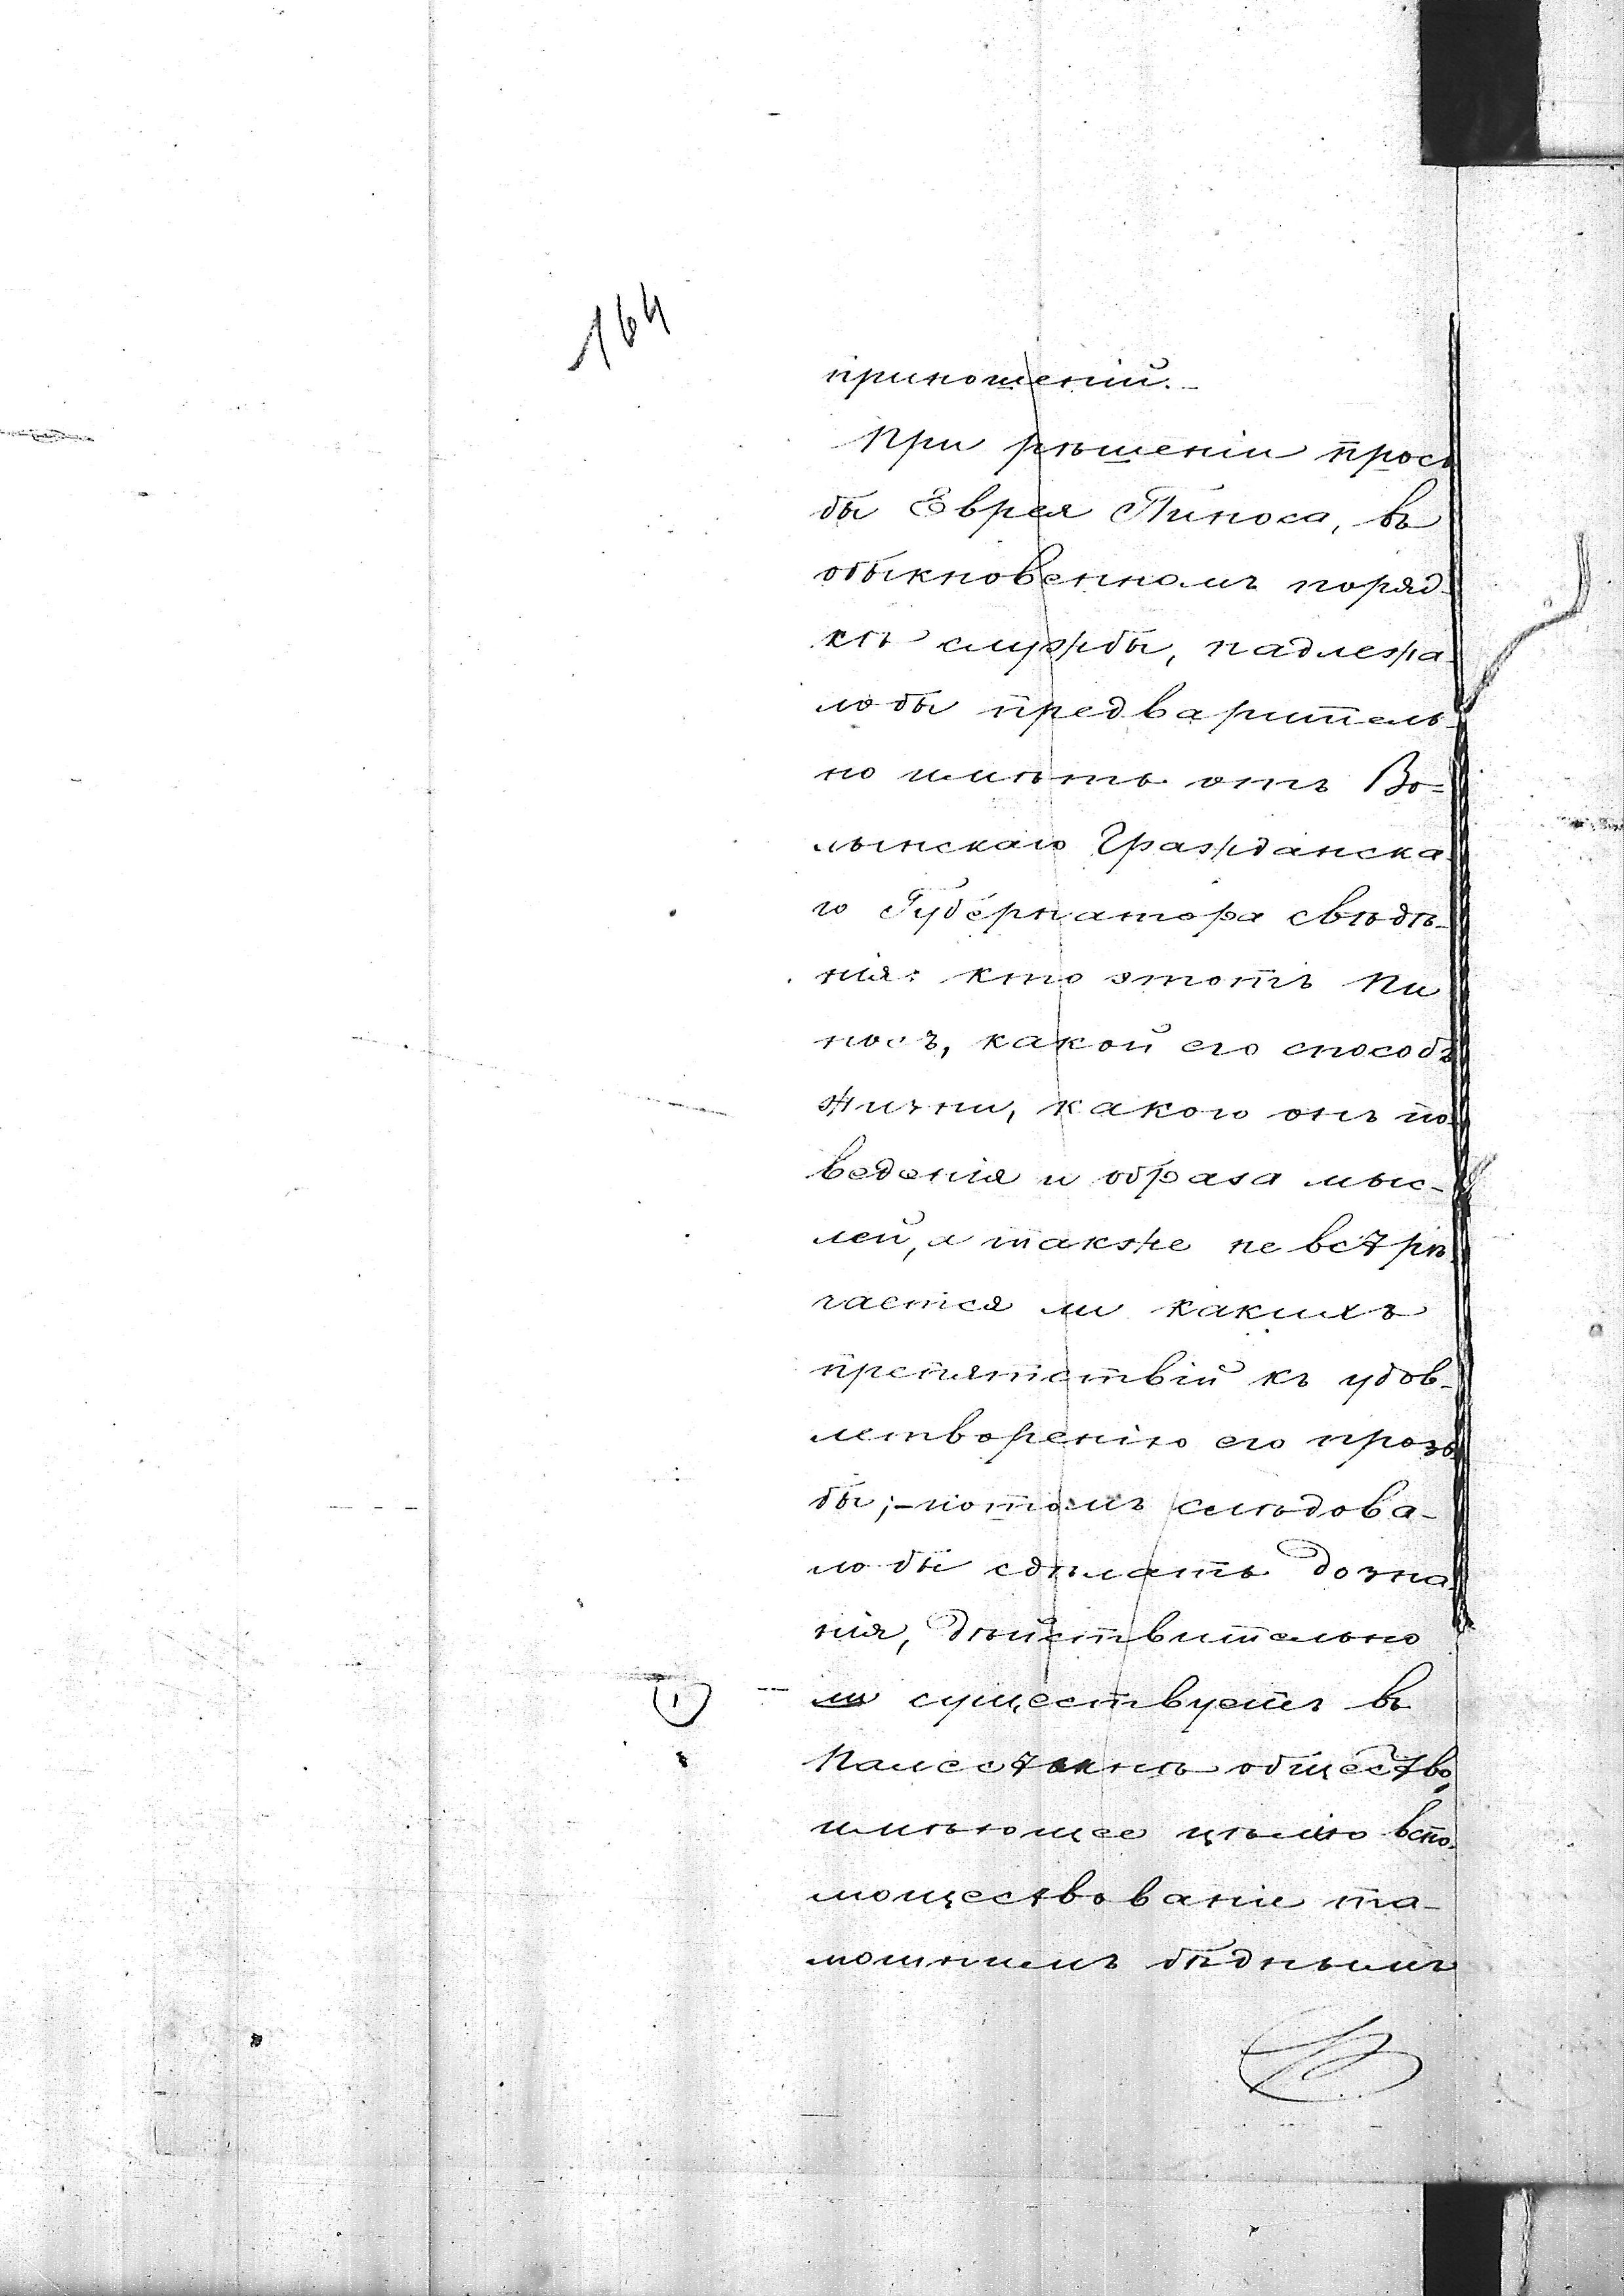 164
приношеній.-
При рѣшеніи прось
бы Еврея Пиноса, въ
обыкновенномъ поряд-
кѣ службы, надлежа-
ло бы предваритель-
но имѣть отъ Во-
лынскаго Гражданска-
го Губернатора свѣдѣ-
нія: кто этотъ Пи
носъ, какой его способъ
жизни, какого онъ по-
веденія и образа мыс-
лей, а также не встрѣ
чается ли какихъ
препятствій къ удов-
летворенію его прозь
бы;- потомъ слѣдова-
ло бы сдѣлать дозна
нія, дѣйствительно
ли существуетъ въ
Палестинѣ общество,
имѣющее цѣлію вспо-
моществованіе та-
мошнимъ бѣднымъ